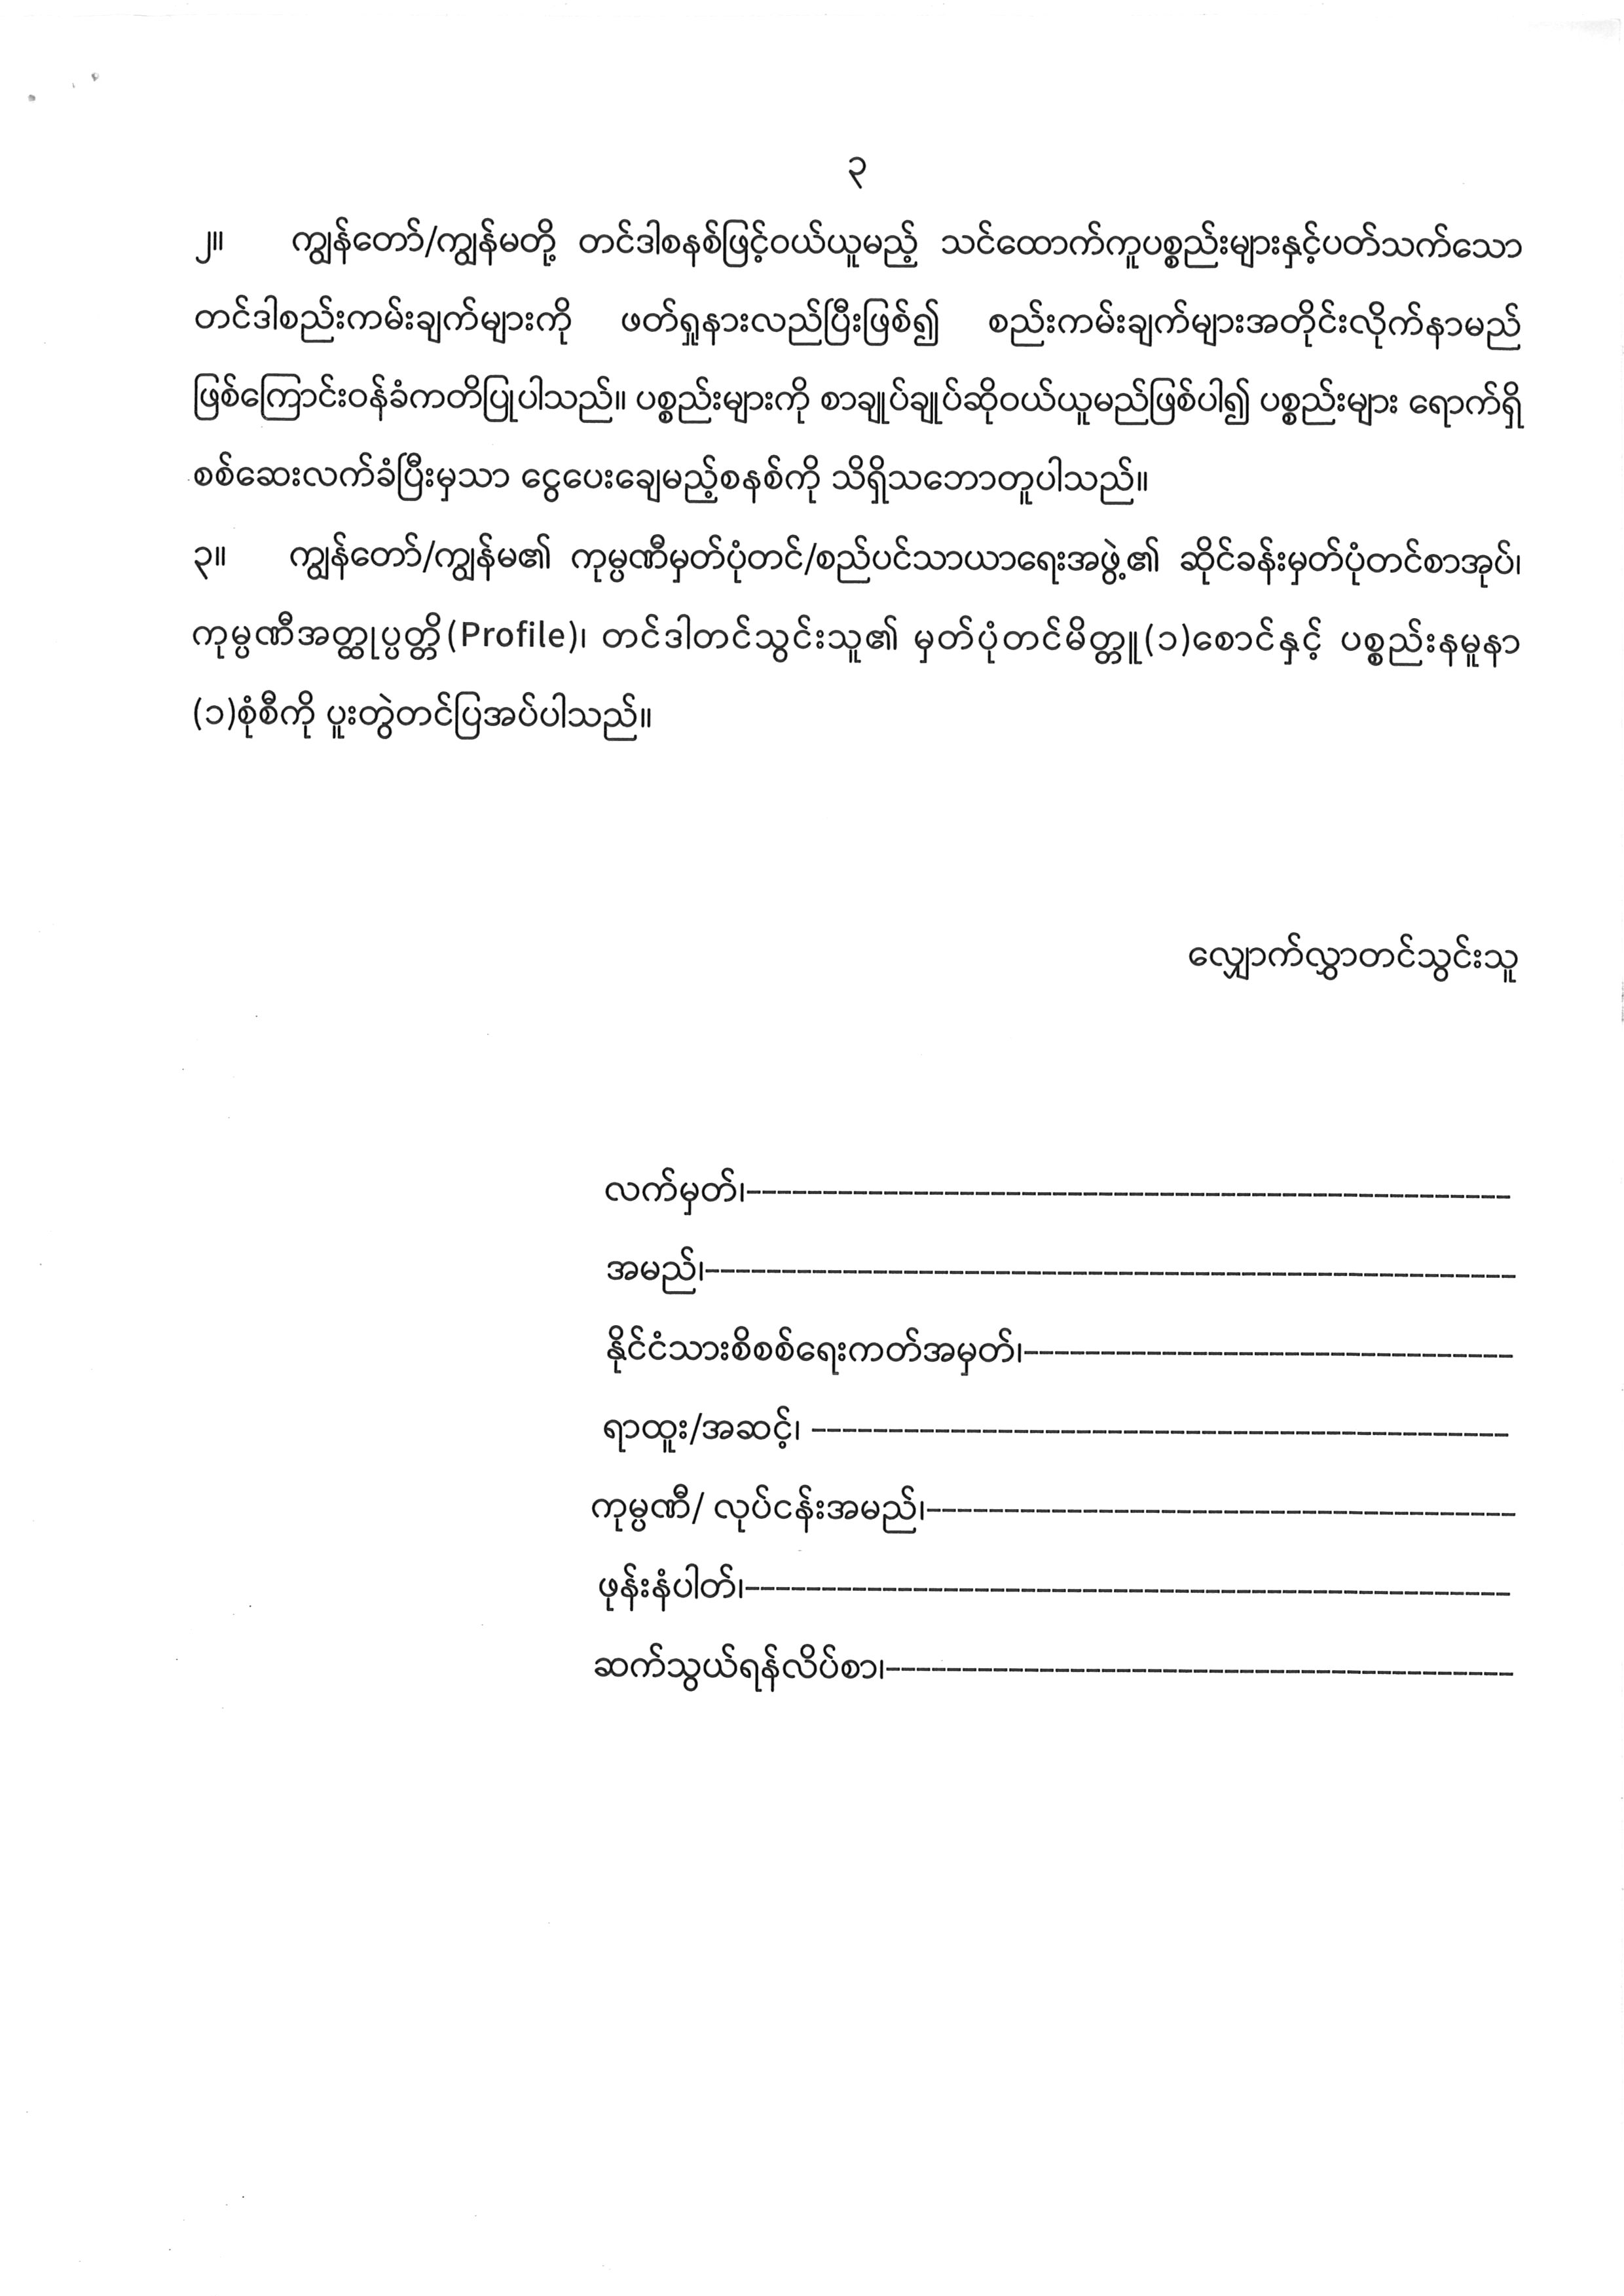 ၃
၂။ ကျွန်တော်/ကျွန်မတို့ တင်ဒါစနစ်ဖြင့်ဝယ်ယူမည့် သင်ထောက်ကူပစ္စည်းများနှင့်ပတ်သက်သော
တင်ဒါစည်းကမ်းချက်များကို ဖတ်ရှုနားလည်ပြီးဖြစ်၍ စည်းကမ်းချက်များအတိုင်းလိုက်နာမည်
ဖြစ်ကြောင်းဝန်ခံကတိပြုပါသည်။ ပစ္စည်းများကို စာချုပ်ချုပ်ဆိုဝယ်ယူမည်ဖြစ်ပါ၍ ပစ္စည်းများ ရောက်ရှိ
စစ်ဆေးလက်ခံပြီးမှသာ ငွေပေးချေမည့်စနစ်ကို သိရှိသဘောတူပါသည်။
၃။ ကျွန်တော်/ကျွန်မ၏ ကုမ္ပဏီမှတ်ပုံတင်/စည်ပင်သာယာရေးအဖွဲ့၏ ဆိုင်ခန်းမှတ်ပုံတင်စာအုပ်၊
ကုမ္ပဏီအတ္ထုပ္ပတ္တိ(Profile)၊ တင်ဒါတင်သွင်းသူ၏ မှတ်ပုံတင်မိတ္တူ(၁)စောင်နှင့် ပစ္စည်းနမူနာ
(၁)စုံစီကို ပူးတွဲတင်ပြအပ်ပါသည်။
လျှောက်လွှာတင်သွင်းသူ
လက်မှတ်၊--------------------------------------------------
အမည်၊-----------------------------------------------------
နိုင်ငံသားစိစစ်ရေးကတ်အမှတ်၊--------------------------------
ရာထူး/အဆင့်၊ ----------------------------------------------
ကုမ္ပဏီ/ လုပ်ငန်းအမည်၊---------------------------------------
ဖုန်းနံပါတ်၊--------------------------------------------------
ဆက်သွယ်ရန်လိပ်စာ၊-----------------------------------------